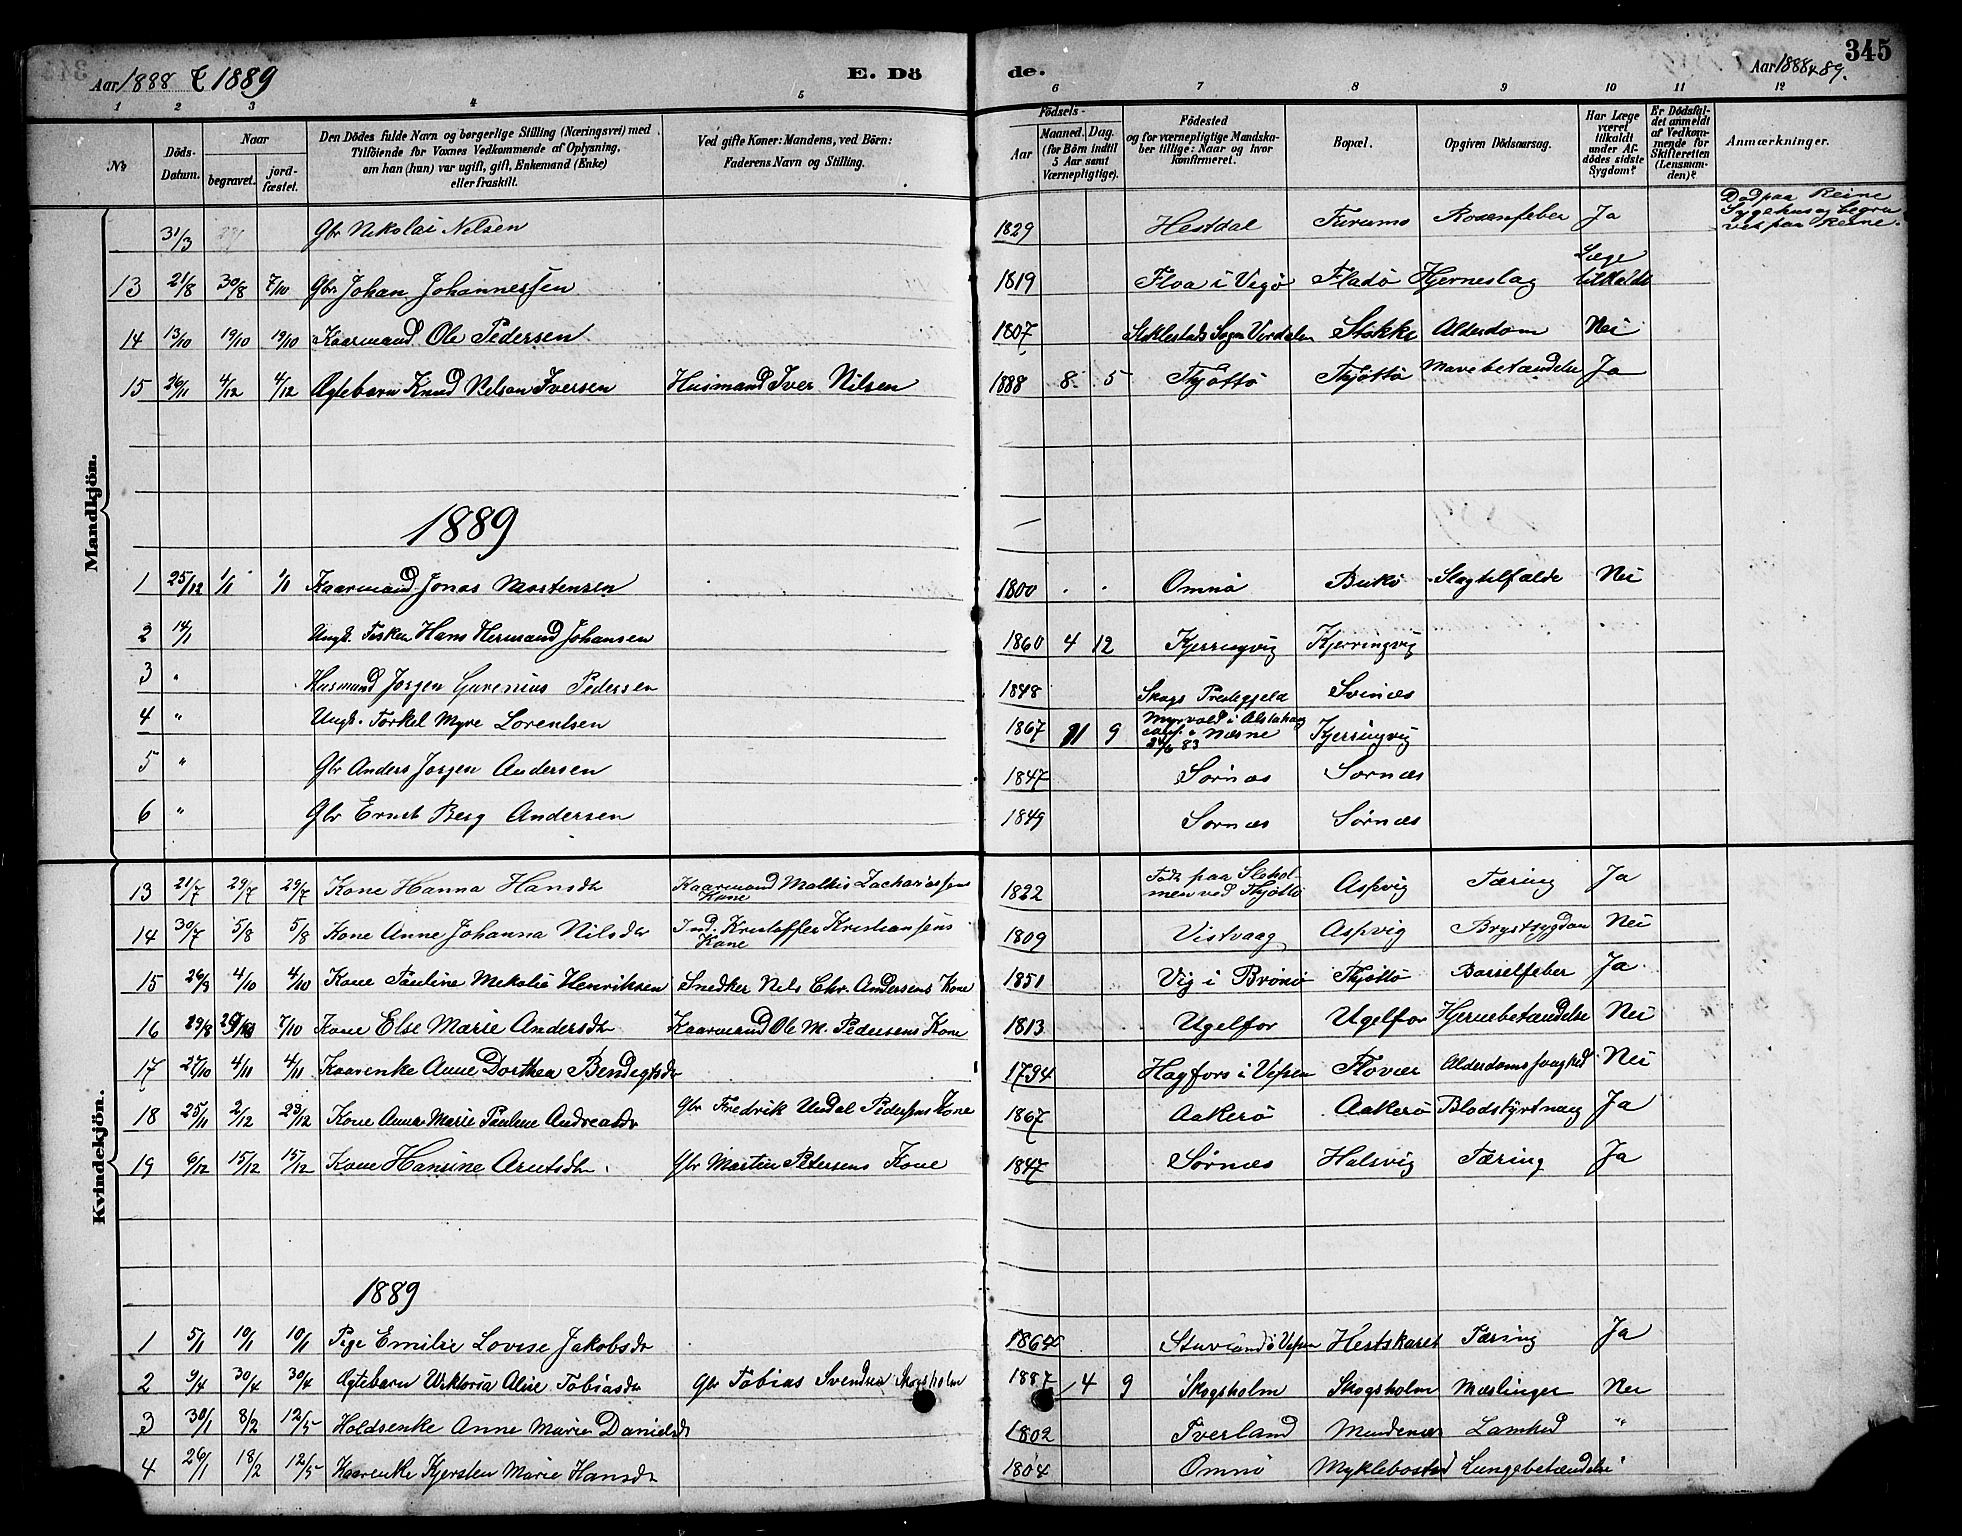 345
Aar 1888 & 1889
E. Dö
de.
Aar 1888 & 89.
1 2 3 4 5 6 7 8 9 10 11 12
No
Döds-
Datum.
Naar
begravet.
jord-
fæstet.
Den Dödes fulde Navn og borgerlige Stilling (Næringsvei) med
Tilföiende for Voxnes Vedkommende af Oplysning,
om han (hun) var ugift, gift, Enkemand (Enke)
eller fraskilt.
Ved gifte Koner: Mandens, ved Börn:
Faderens Navn og Stilling.
Födsels-
Aar
Maaned. Dag.
(for Börn indtil
5 Aar samt
Værnepligtige).
Födested
og for værnepligtige Mandska-
ber tillige: Naar og hvor
konfirmeret.
Bopæl.
Opgiven Dödsaarsag.
Har Læge
været
tilkaldt
under Af-
dödes sidste
Sygdom?
Er Dödsfal-
det anmeldt
af Vedkom-
mende for
Skifteretten
(Lensman-
den)?
Anmærkninger.
Mandkjön.
31/3 Gbr Nikolai Nilsen 1829 Hestdal Furumo Rosenfeber Ja Död paa Reine
Sygehus og begra
vet paa Reine.
13 21/8 30/8 7/10 Gbr Johan Johannessen 1819 Floa i Vegö Fladö Hjerneslag Læge
tilkaldt
14 13/10 19/10 19/10 Kaarmand Ole Pedersen 1807 Stiklestads Sogn Verdalen Stokke Alderdom Nei
15 26/11 4/12 4/12 Ægtebarn Knud Nelson Iversen Husmand Iver Nilsen 1888 8 5 Thjöttö Thjöttö Mavebetændelse Ja
1889
1 25/12 1/1 1/1 Kaarmand Jonas Mortensen 1800 Omnö Bukö Slagtilfælde Nei
2 14/1 Ungk. Fisker Hans Hermand Johansen 1860 4 12 Kjerringvig Kjerringvig
3 " Husmand Jorgen Gurenius Pedersen 1848 Skogs Prestegjeld Svinæs
4 " Ungk. Torkel Myre Lorentsen 1867 11 9 Myrvold i Alstahaug
conf. i Næsne
24/6 83 Kjerringvig
5 " Gbr Anders Jorgen Andersen 1847 Sörnæs Sörnæs
6 " Gbr Ernst Berg Andersen 1849 Sörnæs Sörnæs
Kvindekjön.
13 21/7 29/7 29/7 Kone Hanna Hansdr Kaarmand Mathis Zachariassens
Kone 1822 Födt paa Slohol-
men ved Thjöttö Aspvig Tæring Ja
14 30/7 5/8 5/8 Kone Anne Johanna Nilsdr Ind. Kristoffer Kristiansens
Kone 1809 Vistvaag Aspvig Brystsygdom Nei
15 26/9 4/10 4/10 Kone Pauline Mekolie Henriksen Snedker Nels Chr. Andersens Kone 1851 Vig i Brönö Thjöttö Barselfeber Ja
16 29/8 7/10 Kone Else Marie Andersdr Kaarmand Ole M. Pedersens Kone 1813 Ugelfor Ugelfor Hjernebetændelse Nei
17 27/10 4/11 4/11 Kaarenke Anne Dorthea Bendigtsdr 1794 Hagfors i Vefsen Flovær Alderdomssvaghed Nei
18 25/11 2/12 23/12 Kone Anna Marie Pauline Andreasdr Gbr Fredrik Undal Pedersens Kone 1867 Aakerö Aakerö Blodstyrtning Ja
19 6/12 15/12 15/12 Kone Hansine Arntsdr Gbr Martin Petersens Kone 1847 Sörnæs Halsvig Tæring Ja
1889
1 5/1 10/1 10/1 Pige Emilie Lovise Jakobsdr 1864 i Vefsen Hestskaret Tæring Ja
2 9/4 30/4 30/4 Ægtebarn Viktoria Aline Tobiasdr Gbr Tobias Svendsen Skogsholm 1887 4 9 Skogsholm Skogsholm Mæslinger Nei
3 30/1 8/2 12/5 Holdsenke Anne Marie Danielsdr 1802 Tverland Mindenæs Lamhed "
4 26/1 18/2 12/5 Kaarenke Kjersten Marie Hansdr 1804 Omnö Myklebostad Lungebetændelse "